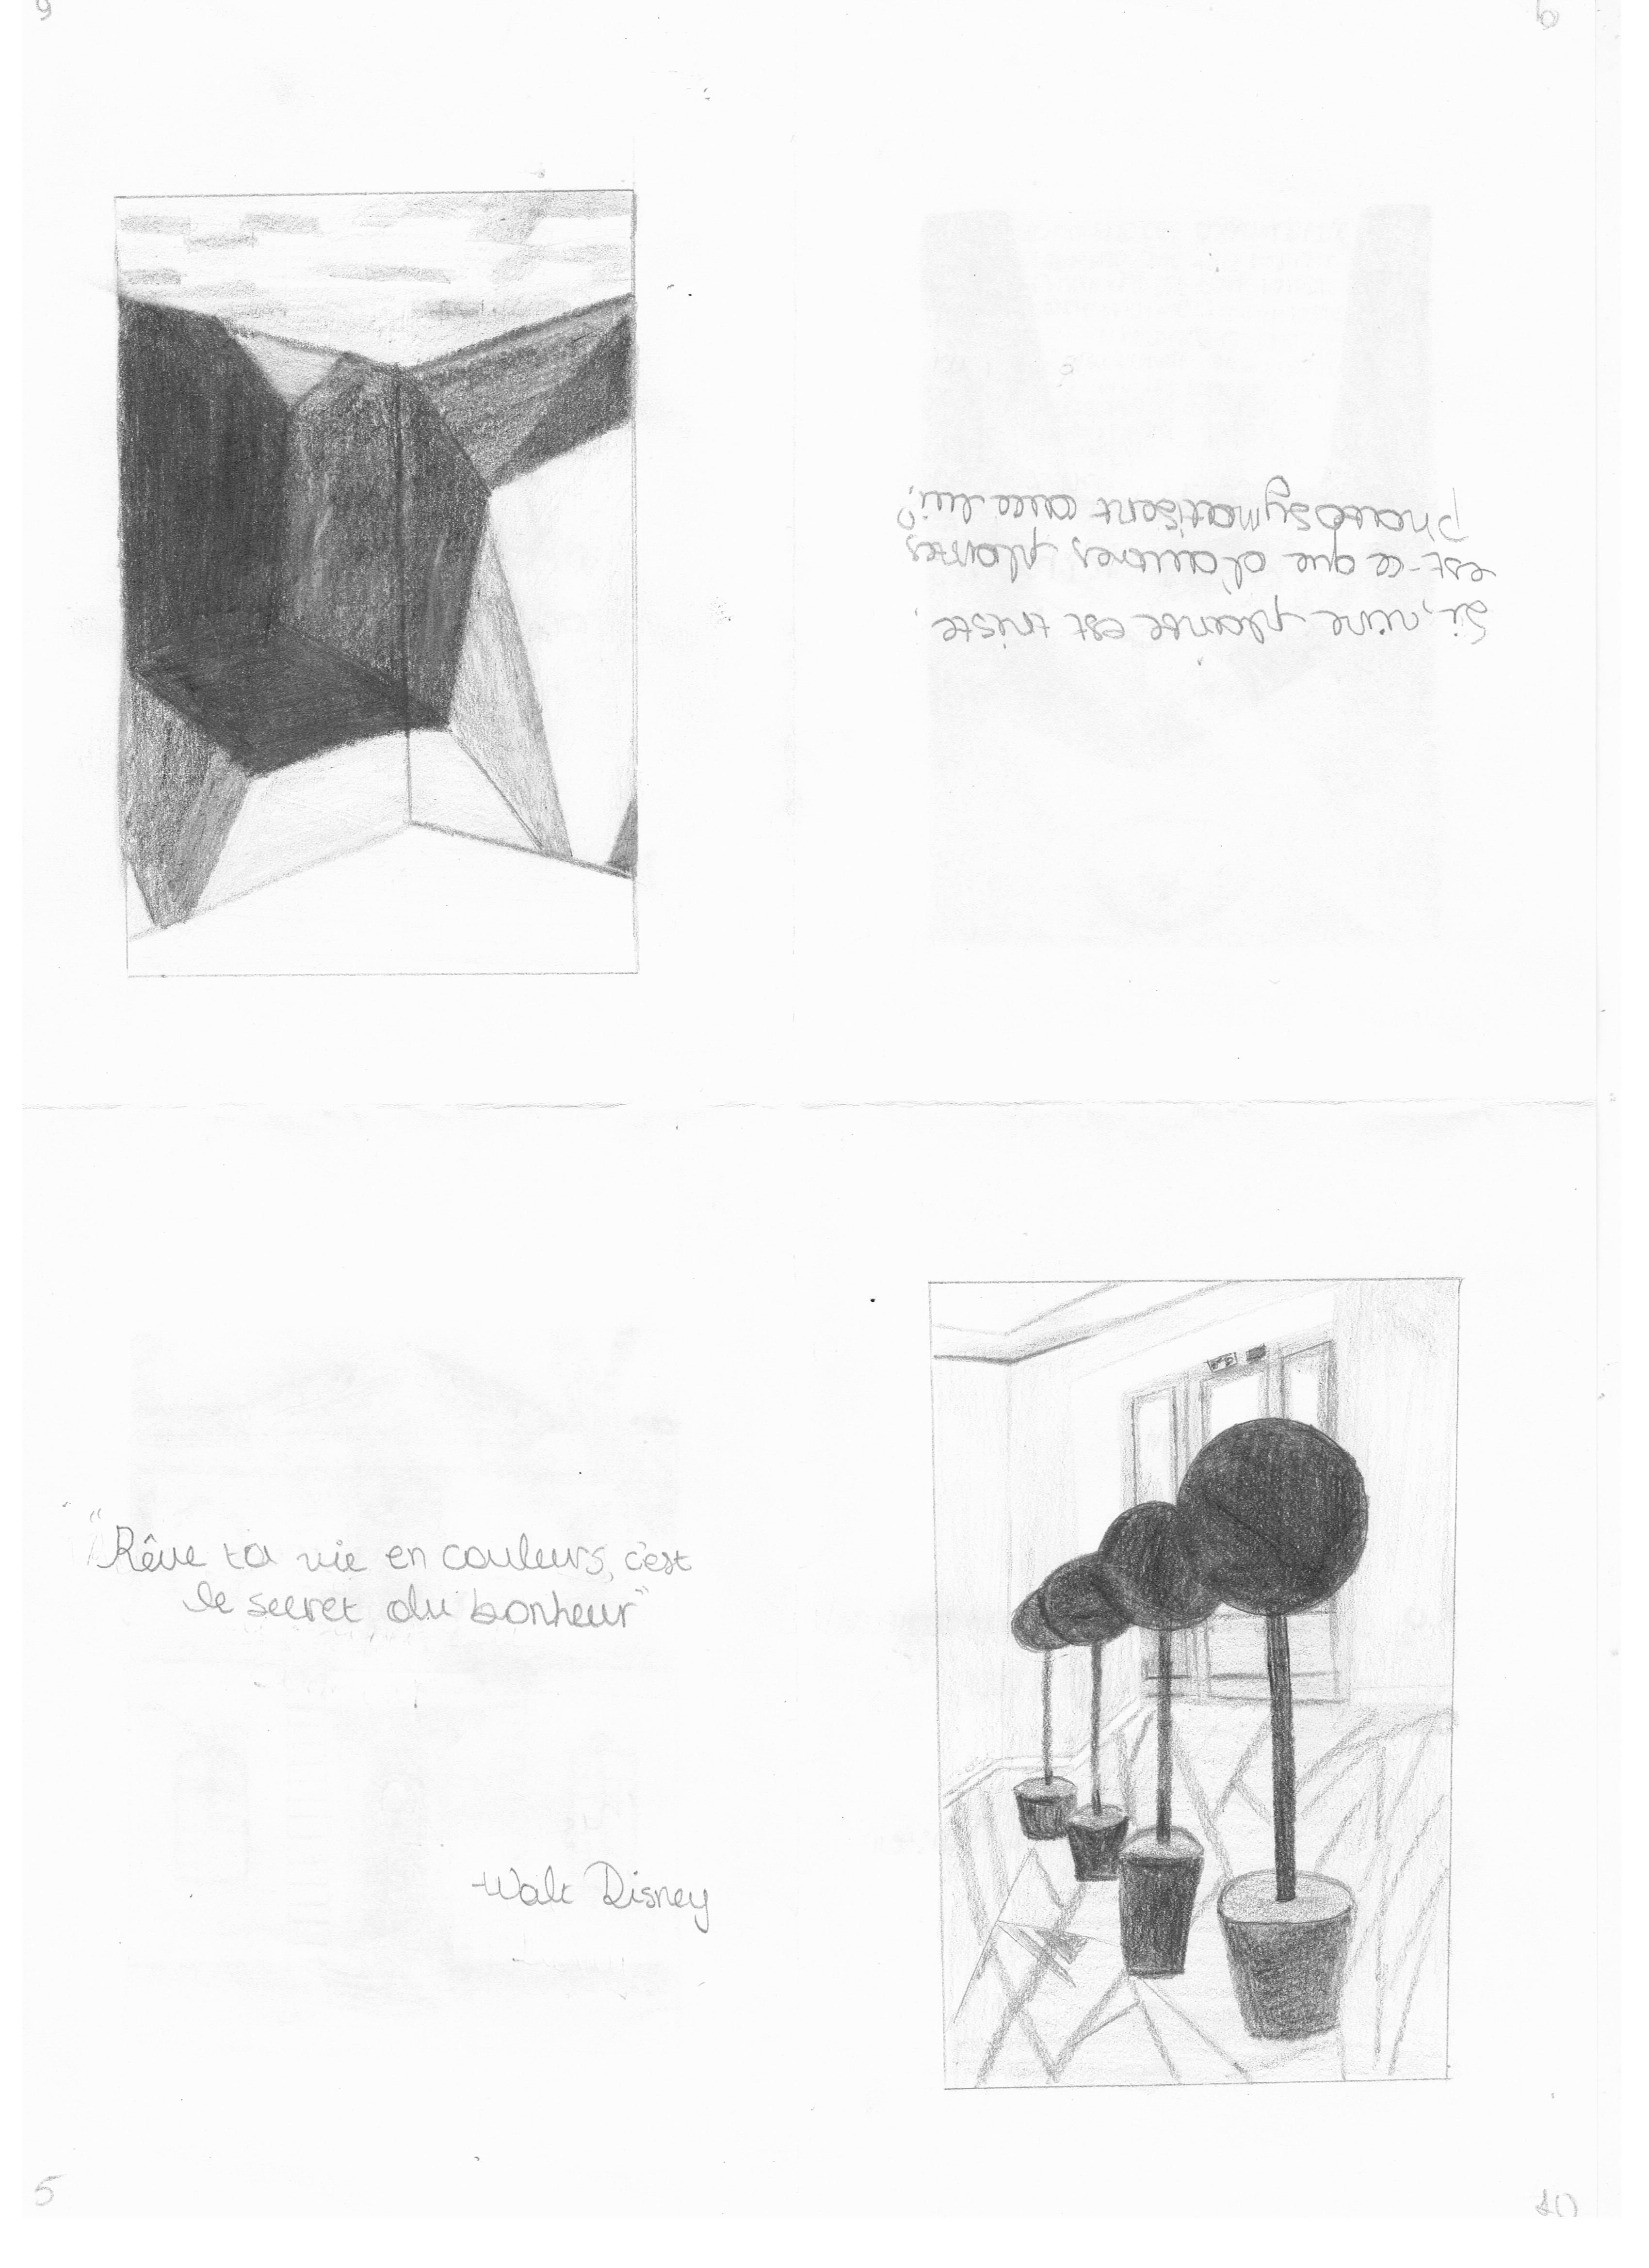 6
9
Si, une plante est triste,
est-ce que d'autres plantes
photosymatisent avec lui?
"Rêve ta vie en couleurs, c'est
le secret du bonheur"
-Walt Disney
5
10